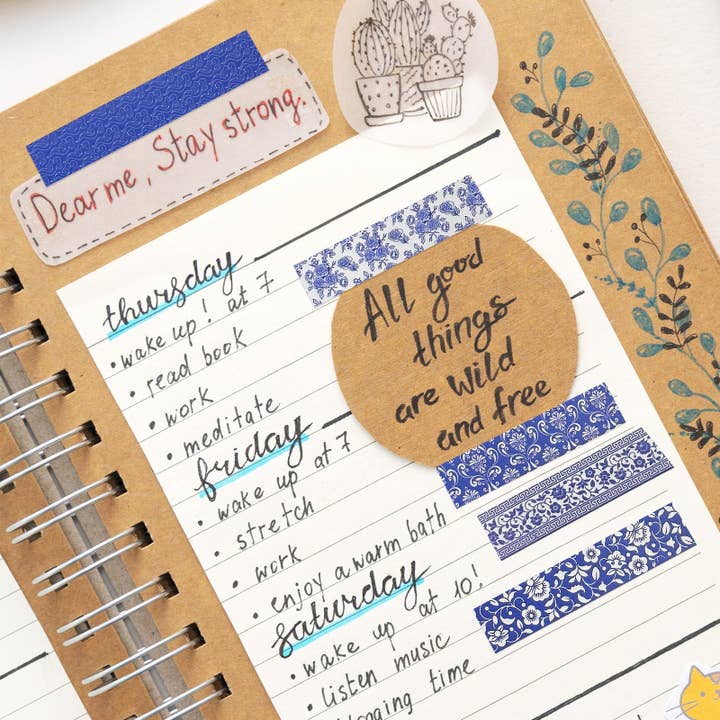 Dear me, Stay strong.
thursday
• wake up! at 7
• read book
• work
• meditate
All good
things
are wild
and free
friday
• wake up at 7
• stretch
• work
• enjoy a warm bath
saturday
• wake up at 10!
• listen music
time